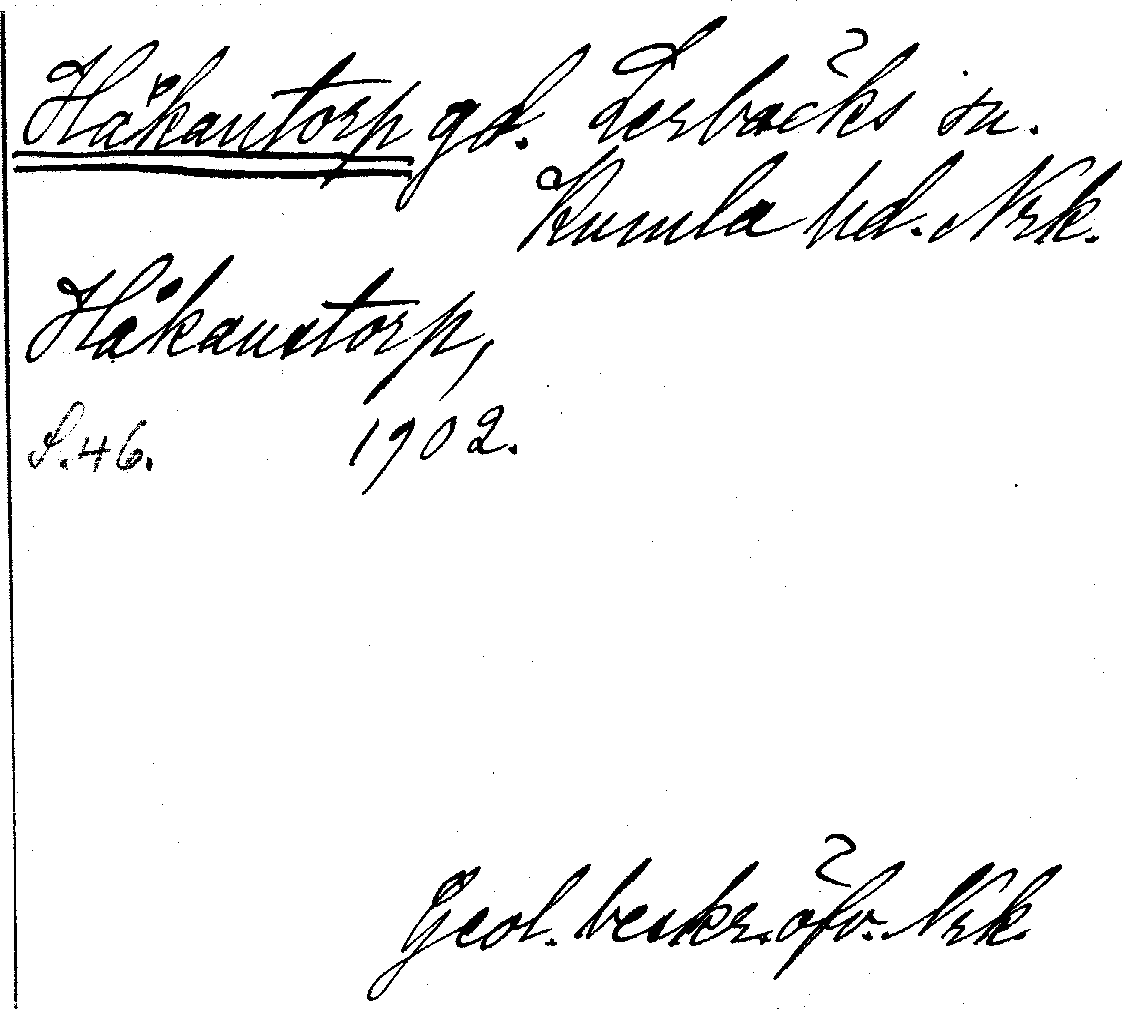 Håkantorp gd. Lerbäcks sn.
Kumla hd. Nrk.
Håkanstorp,
S. 46. 1902.
Geol. beskr. öfv. Nrk.